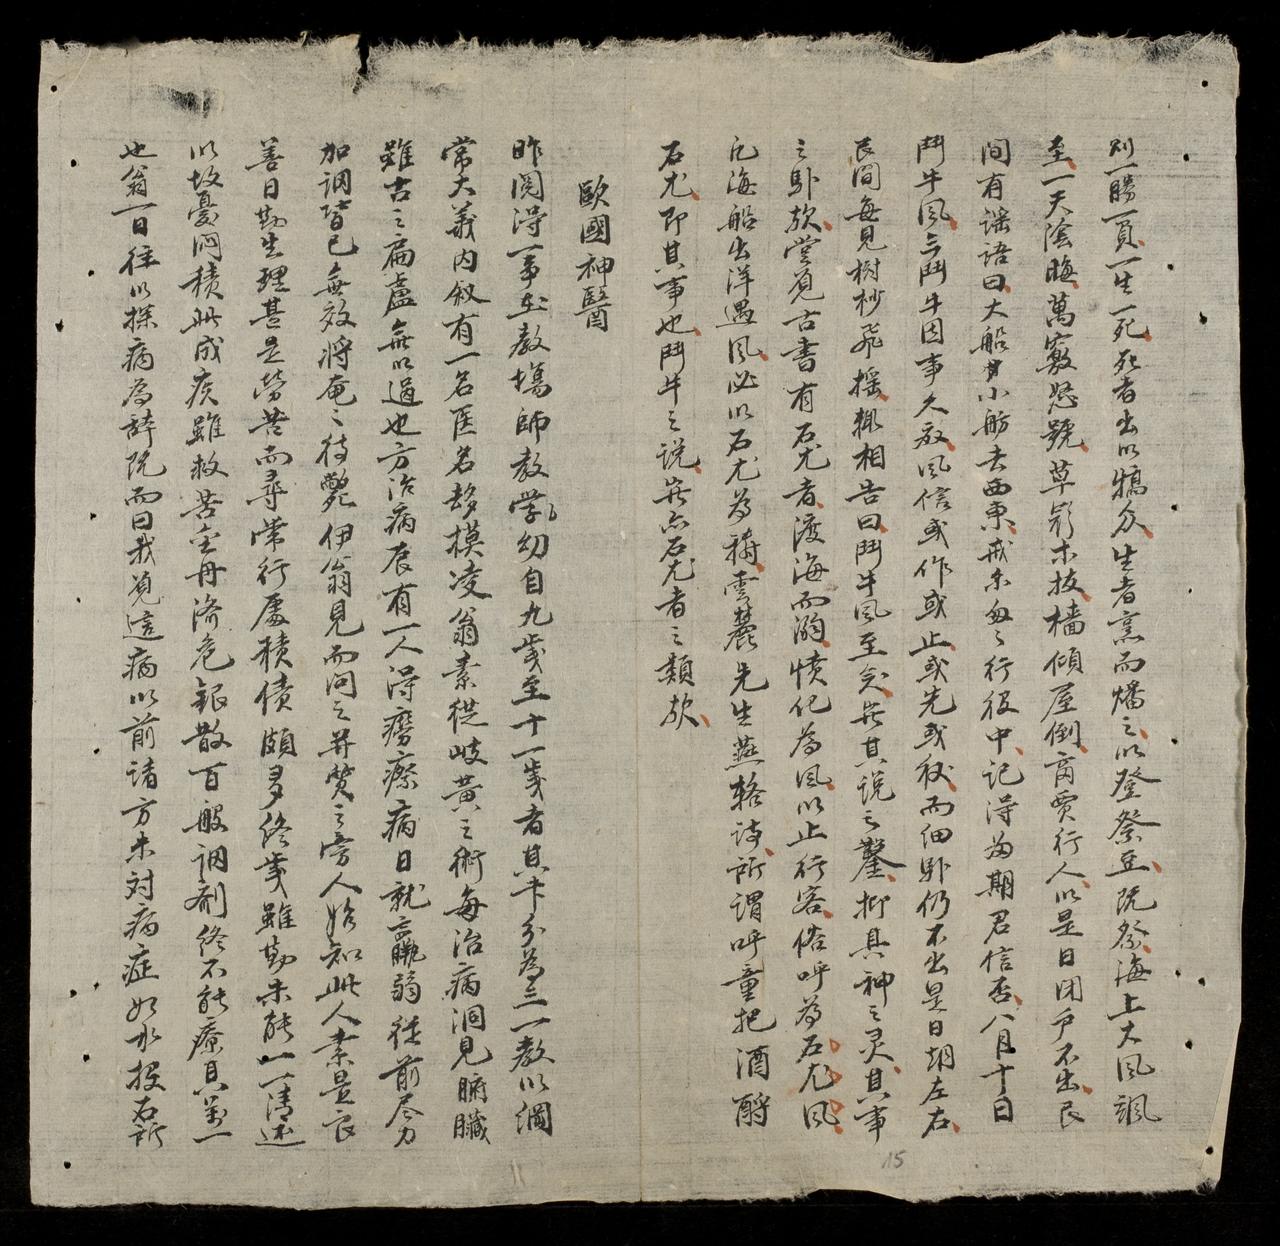 別一勝一負一生一死死者出以犒众生者烹而燔之以登祭豆既祭海上大風颯
至一天陰晦萬竅怒號草彰木拔檣傾屋倒商賈行人以是日闭戶不出民
间有謠语曰大船小舫去西東戒求匆々行役中记得為期君信否八月十日
鬥牛風云鬥牛因事久敖風信或作或止或先或後而细卧仍不出是日朝左右
民间每見樹杪飛摇輒相告曰鬥牛風至矣其说之鑿抑其神之灵其事
之卧欤嘗见古書有石尤者渡海而溺愤化為風以止行客俗呼為石尤風
凡海船出洋遇風必以石尤為禱雲麓先生燕輅诗所谓呼童把酒酹
石尤即其事也鬥牛之说亦石尤者之類欤
歐國神醫
昨閱得一事在教塲師教学幼自九歲至十一歲者其卡分為三一教以綱
常大義内叙有一名医名模凌翁素從岐黄之術每治病洞見腑臟
雖古之扁盧無以過也方治病辰有一人得癆瘵病日就羸弱從前尽力
加调皆已無效将奄々待斃伊翁見而问之并赞之旁人始知此人素是良
善日勤生理甚是勞苦而尋常行屢積债頗多终歲雖勤未能一一清还
以故憂闷積此成疾雖救苦金丹济危銀散百般调剂终不能療其萬一
也翁一日往以探病為辞既而曰我见這病以前诸方未対病症如水投石所